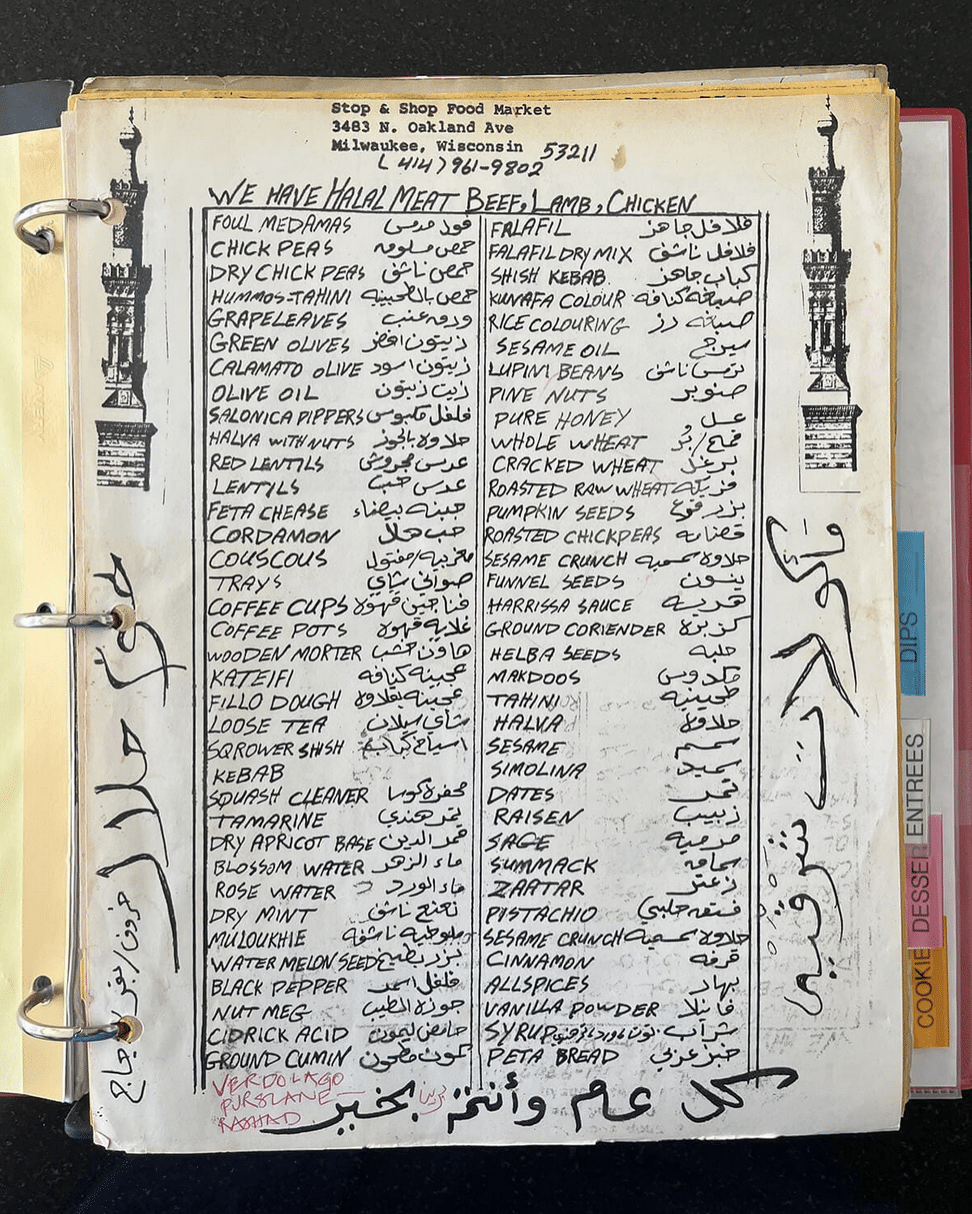 Stop & Shop Food Market
3483 N. Oakland Ave
Milwaukee, Wisconsin 53211
(414) 961-9802
WE HAVE HALAL MEAT BEEF, LAMB, CHICKEN
FOUL MEDAMAS فول مدمس
CHICK PEAS حمص مسلوقه
DRY CHICK PEAS حمص ناشف
HUMMOS-TAHINI حمص بالطحينيه
GRAPELEAVES ورق عنب
GREEN OLIVES زيتون اخضر
CALAMATO OLIVE زيتون اسود
OLIVE OIL زيت زيتون
SALONICA PIPPERS فلفل مكبوس
HALVA WITH NUTS حلاوة بالجوز
RED LENTILS عدس مجروش
LENTYLS عدس حب
FETA CHEASE جبنه بيضاء
CORDAMON حب هال
COUSCOUS مغربيه/مفتول
TRAYS صواني شاي
COFFEE CUPS فناجين قهوة
COFFEE POTS غلايه قهوة
WOODEN MORTER هاون خشب
KATEIFI عجينه كنافه
FILLO DOUGH عجينه بقلاوة
LOOSE TEA شاي سيلان
SQROWER SHISH اسياخ كباب
KEBAB
SQUASH CLEANER محفرة كوسا
TAMARINE تمر هندي
DRY APRICOT BASE قمر الدين
BLOSSOM WATER ماء الزهر
ROSE WATER ماء الورد
DRY MINT نعنع ناشف
MULOUKHIE ملوخيه ناشفه
WATER MELON SEED بزر بطيخ
BLACK PEPPER فلفل اسمر
NUT MEG جوزة الطيب
CIDRICK ACID حامض ليمون
GROUND CUMIN كمون مطحون
VERDOLAGO
PURSLANE -
RASHAD
FALAFIL فلافل جاهز
FALAFIL DRY MIX فلافل ناشف
SHISH KEBAB كباب جاهز
KUNAFA COLOUR صبغه كنافه
RICE COLOURING صبغه رز
SESAME OIL سيرج
LUPINI BEANS ترمس ناشف
PINE NUTS صنوبر
PURE HONEY عسل
WHOLE WHEAT قمح/بُر
CRACKED WHEAT برغل
ROASTED RAW WHEAT فريكه
PUMPKIN SEEDS بزر قرع
ROASTED CHICKPEAS قضامه
SESAME CRUNCH حلاوة سمسميه
FUNNEL SEEDS ينسون
HARRISSA SAUCE هريسه
GROUND CORIENDER كزبرة
HELBA SEEDS حلبه
MAKDOOS مكدوس
TAHINI طحينيه
HALVA حلاوة
SESAME سمسم
SIMOLINA سميد
DATES تمر
RAISEN زبيب
SAGE مرميه
SUMMACK سماقه
ZAATAR زعتر
PISTACHIO فستقه حلبي
SESAME CRUNCH حلاوة سمسميه
CINNAMON قرفه
ALLSPICES بهار
VANILLA POWDER فانيلا
SYRUP شراب
PETA BREAD خبز عربي
كل عام وأنتم بخير
لحوم حلال
خروف/بقر/دجاج
مأكولات شرقيه
DIPS
ENTREES
DESSE
COOKIE